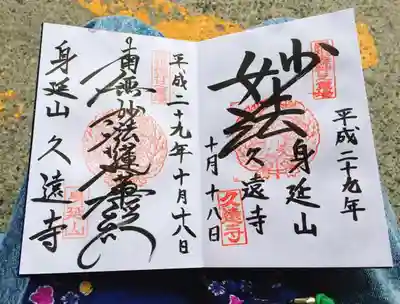 平成二十九年
身延山
妙法
久遠寺
十月十八日
久遠寺
平成二十九年十月十八日
南無妙法蓮華経
身延山久遠寺